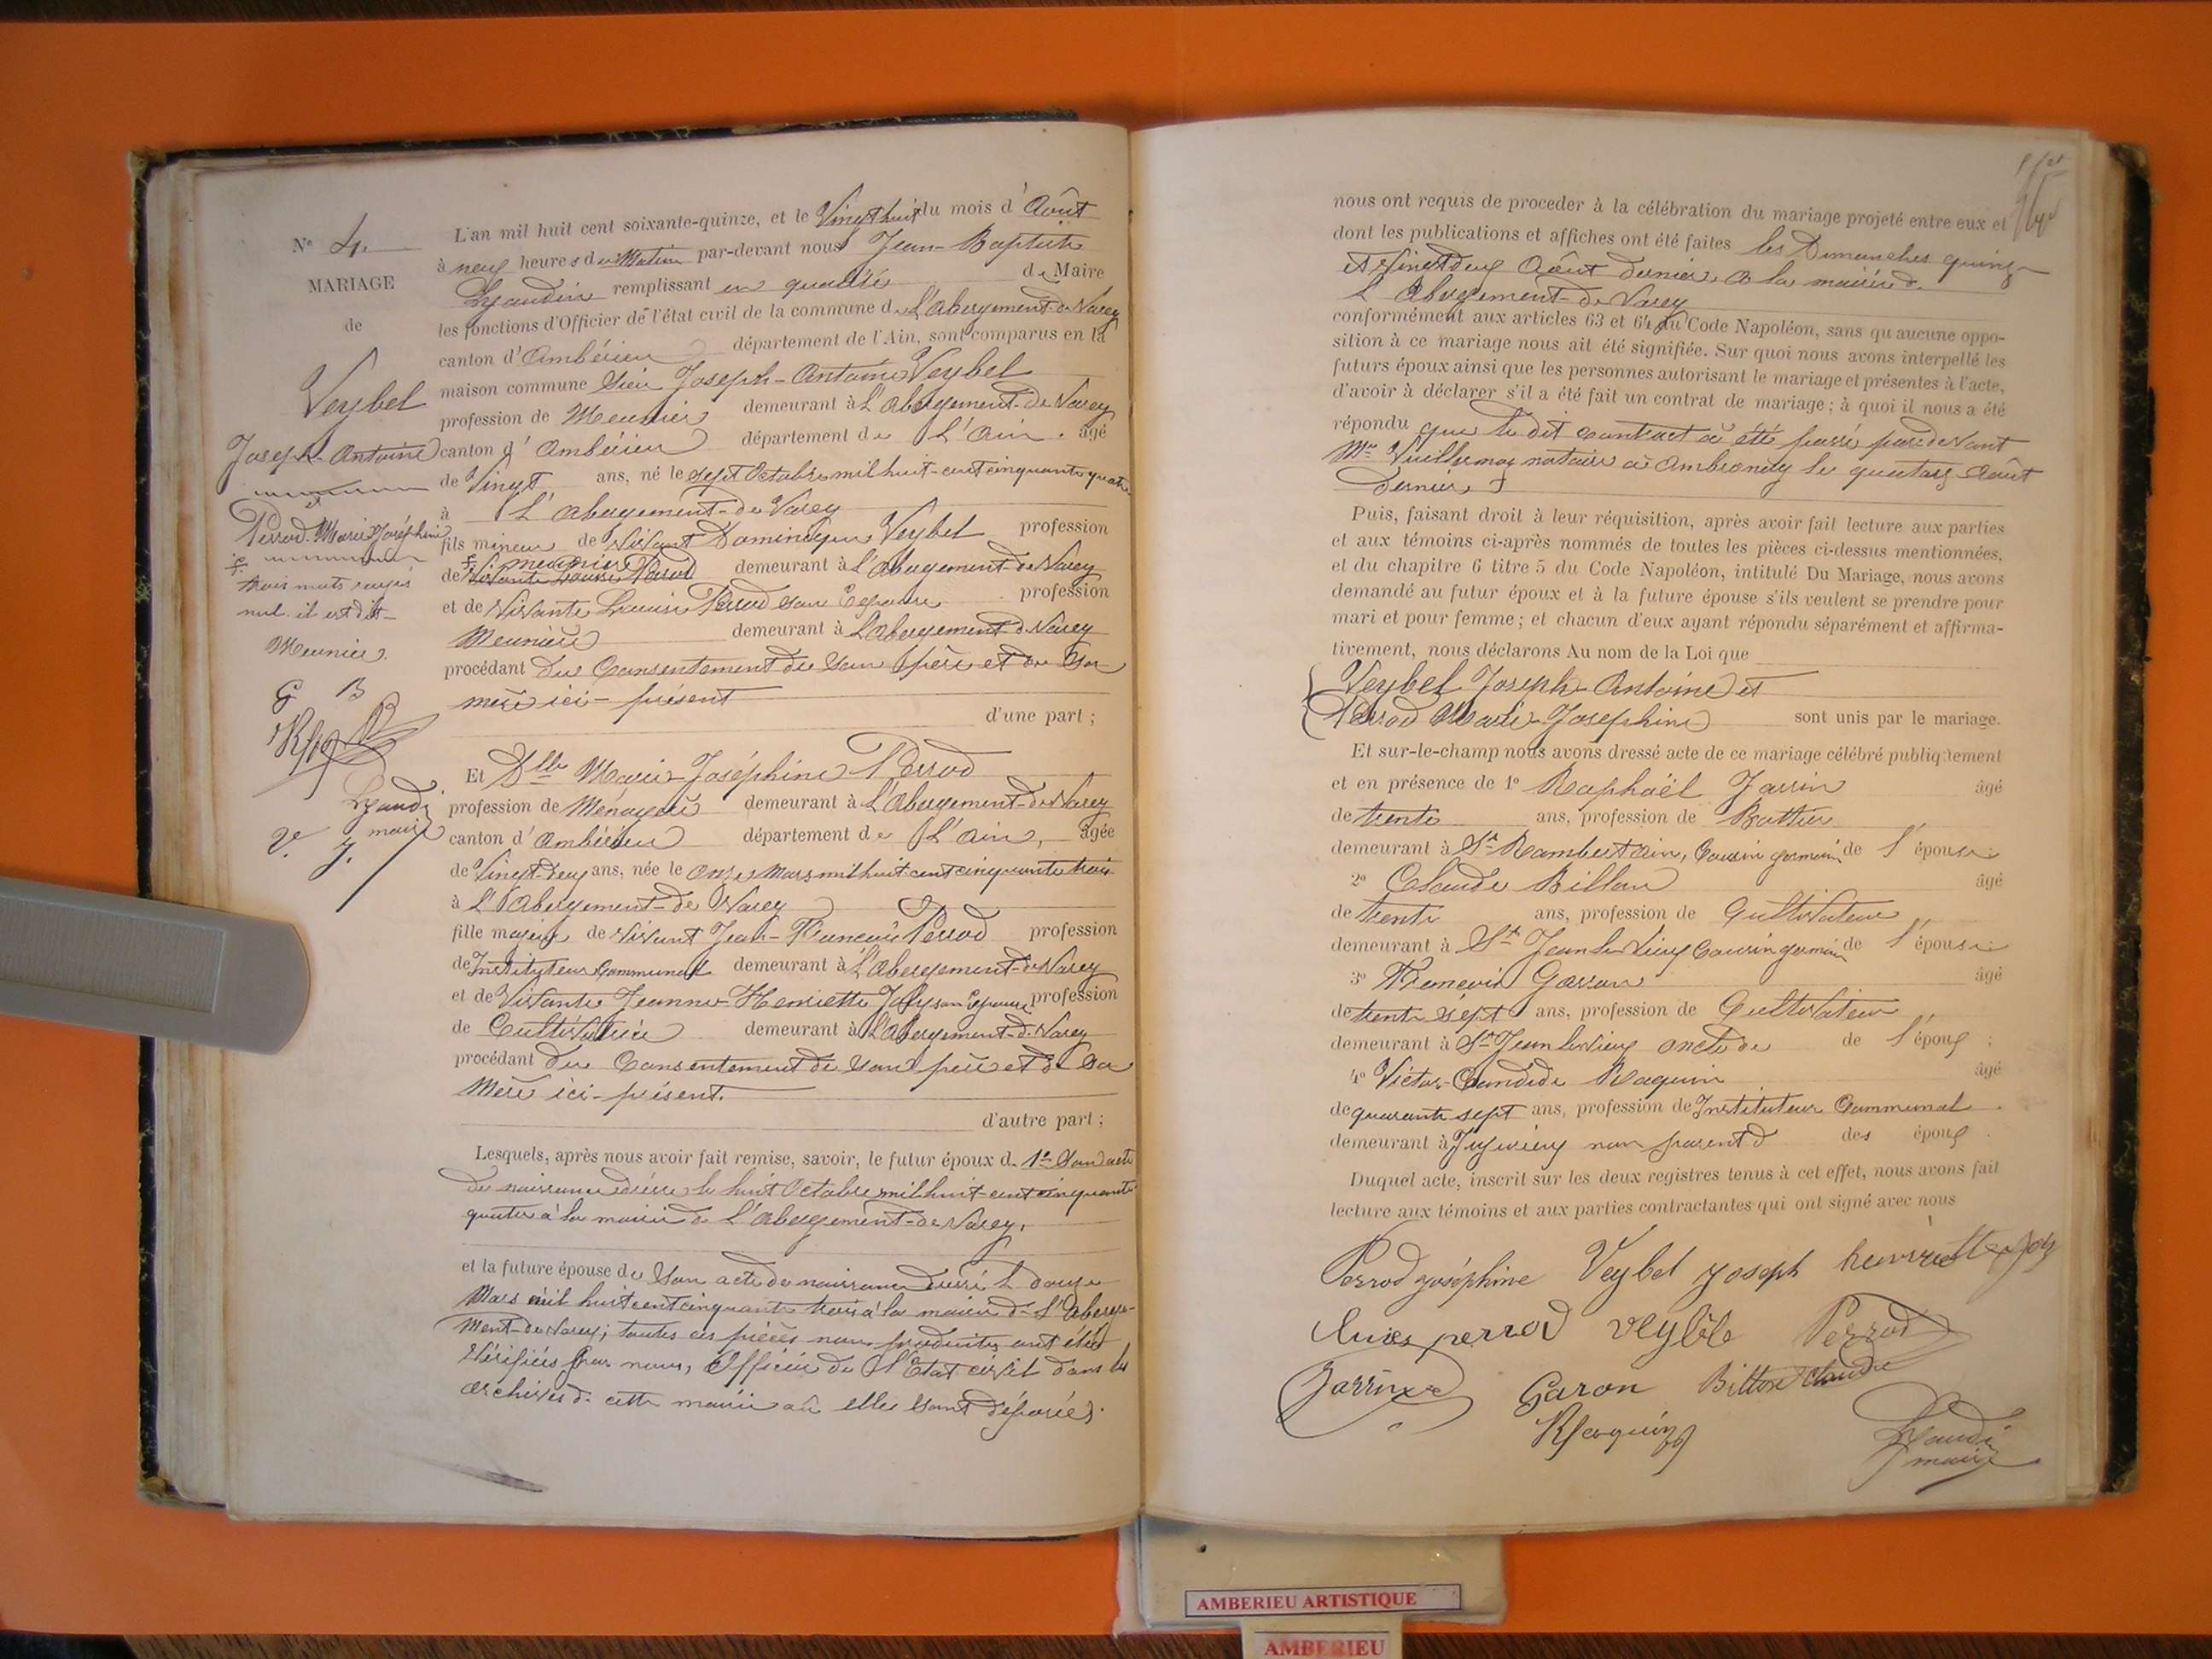 N° 4.
MARIAGE
de
Veybel
Joseph-Antoine
et
Perrod Marie Joséphine
trois mots rayés
nul. il est dit
Meunier.
G B
maire
V. J.
L'an mil huit cent soixante-quinze, et le Vingt huit du mois d'Août
à neuf heures du Matin par-devant nous Jean-Baptiste
remplissant en qualité de Maire
les fonctions d'Officier de l'état civil de la commune de L'abergement-de Varey
canton d'Ambérieu département de l'Ain, sont comparus en la
maison commune Sieur Joseph-Antoine Veybel
profession de Meunier demeurant à L'abergement-de Varey
canton d'Ambérieu département de L'Ain. âgé
de Vingt ans, né le sept Octobre mil huit-cent cinquante quatre
à L'abergement-de Varey
fils mineur de vivant Dominique Veybel profession
de meunier vivante Louise Perrod demeurant à L'abergement de Varey
et de Vivante Louise Perrod son Epouse profession
Meunière demeurant à L'abergement de Varey
procédant du Consentement de son père et de sa
mère ici-présent
d'une part ;
Et Dlle Marie-Joséphine Perrod
profession de Ménagère demeurant à L'abergement-de Varey
canton d'Ambérieu département de L'Ain, âgée
de Vingt-deux ans, née le onze Mars mil huit cent cinquante trois
à L'abergement-de Varey
fille majeure de vivant Jean-François Perrod profession
de Instituteur Communal demeurant à L'abergement-de Varey
et de Vivante Jeanne-Henriette Joly son Epouse profession
de Cultivatrice demeurant à L'abergement-de Varey
procédant du Consentement de son père et de sa
Mère ici-présent.
d'autre part ;
Lesquels, après nous avoir fait remise, savoir, le futur époux d. 1° Son acte
de naissance dressé le huit Octobre mil huit-cent cinquante
quatre à la mairie de L'abergement-de Varey,
et la future épouse de Son acte de naissance dressé le douze
Mars mil huit cent cinquante trois à la mairie de L'aberge-
ment-de Varey; toutes ces pièces non produites ont été
vérifiées par nous, Officier de l'Etat civil dans les
archives de cette mairie où elles sont déposées.
nous ont requis de proceder à la célébration du mariage projeté entre eux et
dont les publications et affiches ont été faites les Dimanches quinze
et Vingt deux Août dernier, à la mairie de
L'abergement-de Varey
conformément aux articles 63 et 64 du Code Napoléon, sans qu'aucune oppo-
sition à ce mariage nous ait été signifiée. Sur quoi nous avons interpellé les
futurs époux ainsi que les personnes autorisant le mariage et présentes à l'acte,
d'avoir à déclarer s'il a été fait un contrat de mariage ; à quoi il nous a été
répondu que le dit contract a été passé par devant
Me notaire à Ambronay le quatorze Août
dernier,
Puis, faisant droit à leur réquisition, après avoir fait lecture aux parties
et aux témoins ci-après nommés de toutes les pièces ci-dessus mentionnées,
et du chapitre 6 titre 5 du Code Napoléon, intitulé Du Mariage, nous avons
demandé au futur époux et à la future épouse s'ils veulent se prendre pour
mari et pour femme ; et chacun d'eux ayant répondu séparément et affirma-
tivement, nous déclarons Au nom de la Loi que
Veybel Joseph-Antoine et
Perrod Marie-Joséphine sont unis par le mariage.
Et sur-le-champ nous avons dressé acte de ce mariage célébré publiquement
et en présence de 1° Raphaël Jarrin âgé
de trente ans, profession de
demeurant à St Rambert Ain, Cousin germain de l'épouse.
2° Claude Billon âgé
de trente ans, profession de Cultivateur
demeurant à St Jean le Vieux Cousin germain de l'épouse
3° François Garon âgé
de trente sept ans, profession de Cultivateur
demeurant à St Jean le Vieux oncle de de l'époux ;
4° Victor-Candide Raquin âgé
de quarante sept ans, profession de Instituteur Communal
demeurant à Jujurieux non parent des époux.
Duquel acte, inscrit sur les deux registres tenus à cet effet, nous avons fait
lecture aux témoins et aux parties contractantes qui ont signé avec nous
Perrod joséphine Veybel joseph henriette joly
perrod veyble Perrod
Jarrin Garon Billon Claude
maire
AMBERIEU ARTISTIQUE
AMBERIEU